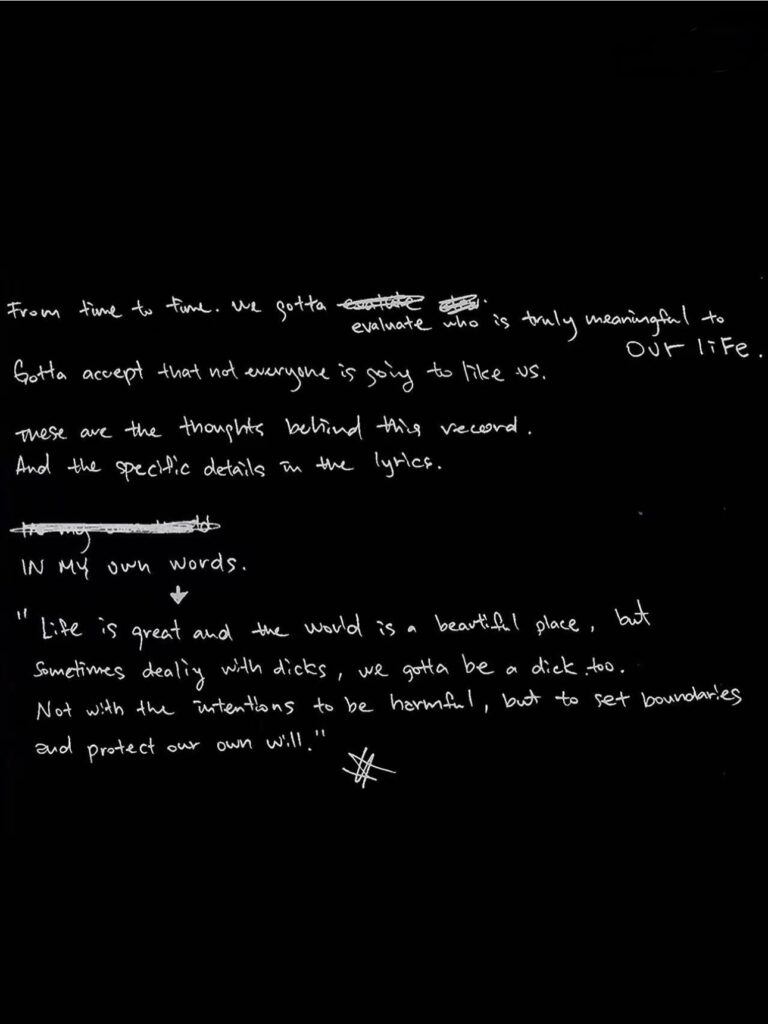 From time to time. we gotta
evaluate who is truly meaningful to
our life.
Gotta accept that not everyone is going to like us.
These are the thoughts behind this record.
And the specific details in the lyrics.
IN MY OWN WORDS.
"Life is great and the world is a beautiful place, but
sometimes dealiy with dicks, we gotta be a dick too.
Not with the intentions to be harmful, but to set boundaries
and protect our own will."